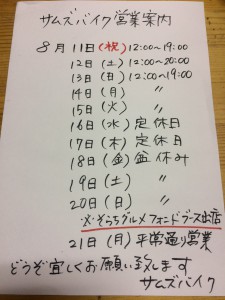 サムズバイク営業案内
8月11日(祝)12:00~19:00
12日(土)12:00~20:00
13日(日)12:00~19:00
14日(月) 〃
15日(火) 〃
16日(水)定休日
17日(木)定休日
18日(金)盆休み
19日(土) 〃
20日(日) 〃
※そらちグルメフォンドブース出店
21日(月)平常通り営業
どうぞ宜しくお願い致します
サムズバイク